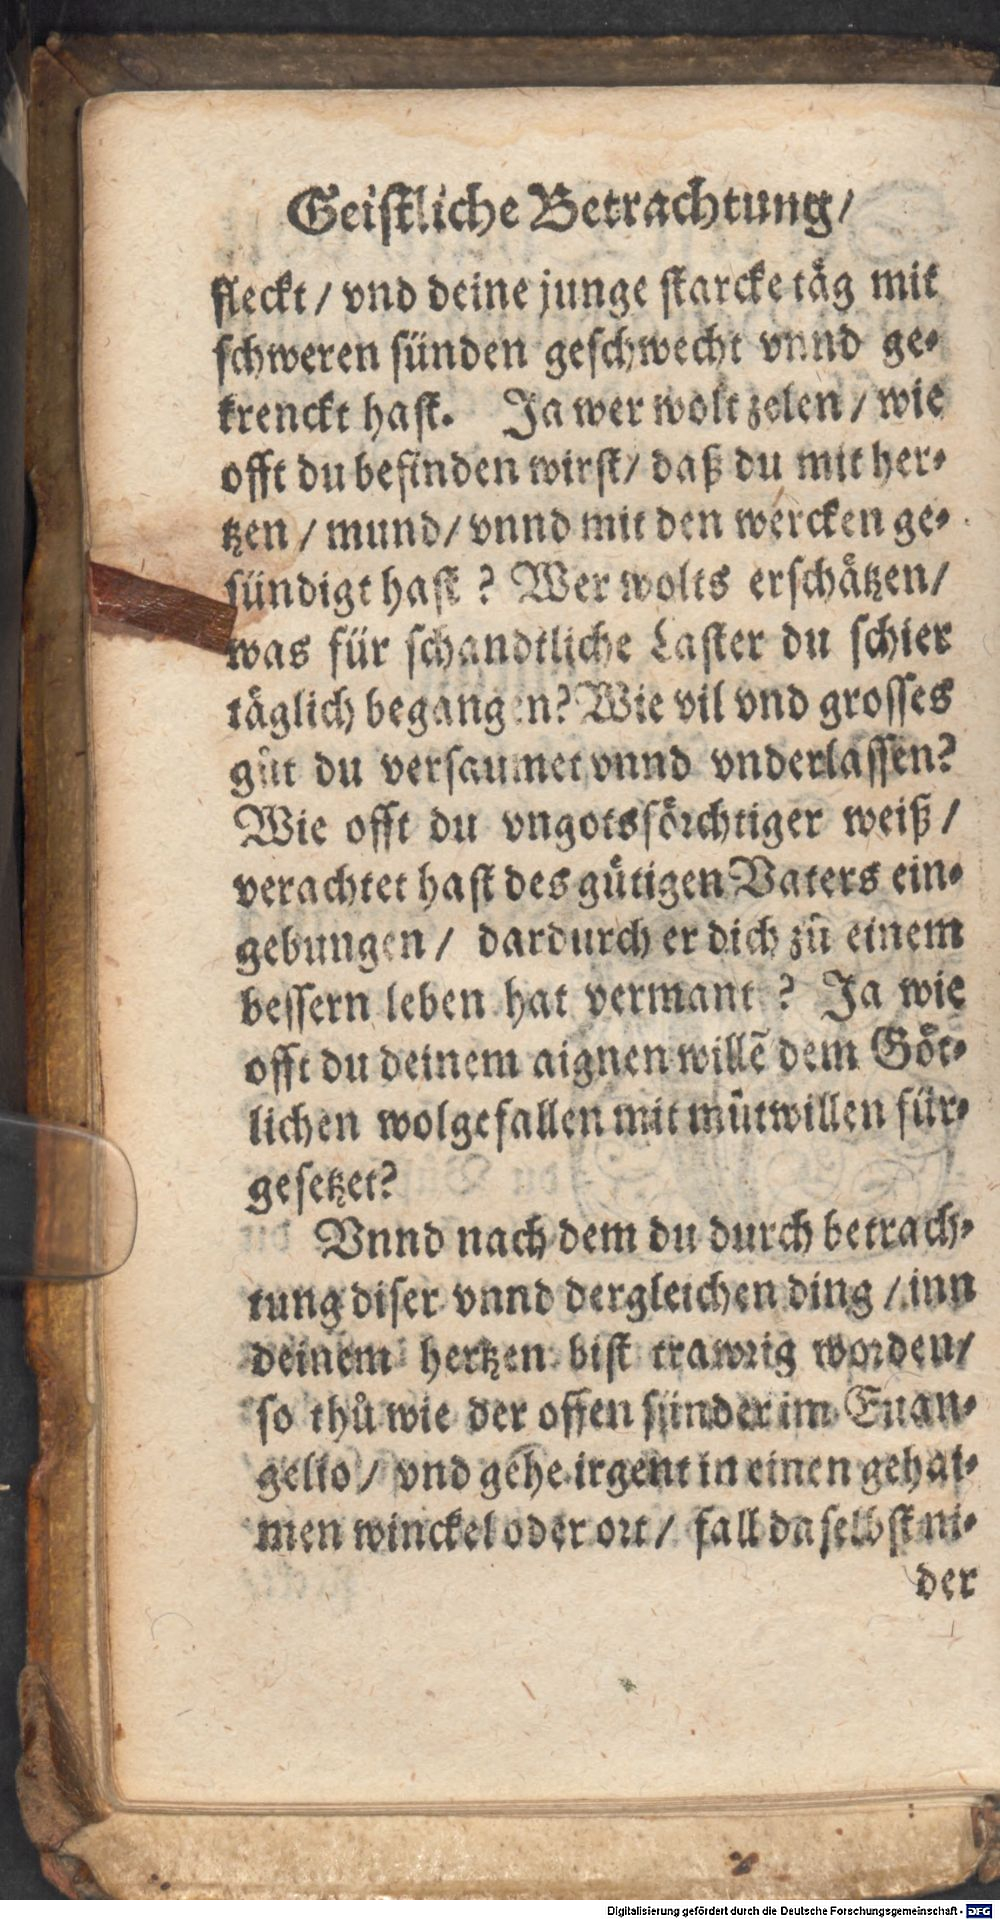 Geistliche Betrachtung/
fleckt/ vnd deine junge starcke täg mit
schweren sünden geschwecht vnnd ge-
krenckt hast. Ja wer wolt zelen/ wie
offt du befinden wirst/ daß du mit her-
tzen/ mund/ vnnd mit den wercken ge-
sündigt hast? Wer wolts erschätzen/
was für schandtliche Laster du schier
täglich begangen? Wie vil vnd grosses
gůt du versaumet vnnd vnderlassen?
Wie offt du vngotsförchtiger weiß/
verachtet hast des gütigen Vaters ein-
gebungen/ dardurch er dich zů einem
bessern leben hat vermant? Ja wie
offt du deinem aignen willẽ dem Göt-
lichen wolgefallen mit můtwillen für-
gesetzet?
Vnnd nach dem du durch betrach-
tung diser vnnd dergleichen ding/ inn
deinem hertzen bist trawrig worden/
so thů wie der offen sünder im Euan-
gelio/ vnd gehe irgent in einen gehai-
men winckel oder ort/ fall daselbst ni-
der
Digitalisierung gefördert durch die Deutsche Forschungsgemeinschaft - DFG